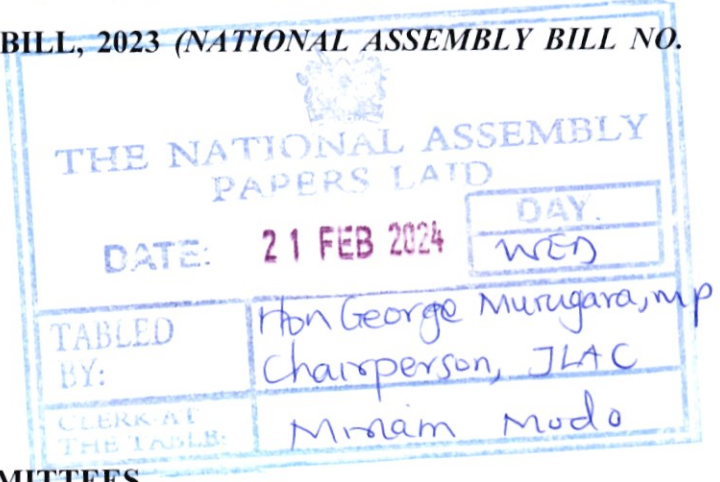 BILL, 2023 (NATIONAL ASSEMBLY BILL NO.
THE NATIONAL ASSEMBLY
PAPERS LAID
DATE: 21 FEB 2024
DAY.
WED
TABLED BY:
Hon George Murugara, mp
Chairperson, JLAC
CLERK-AT THE TABLE:
Miriam Modo
MITTEES